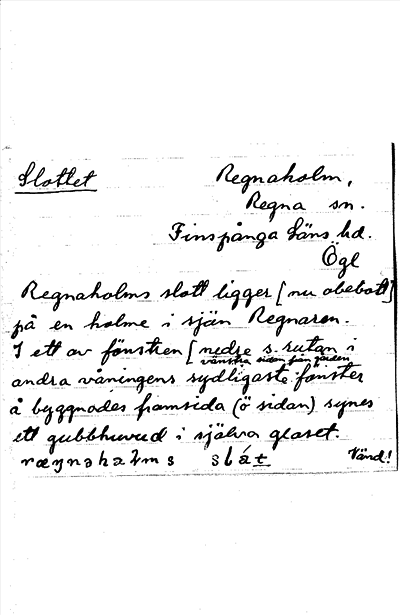 Slottet
Regnaholm,
Regna sn.
Finspånga läns hd.
Ögl
Regnaholms slott ligger [nu obebott]
på en holme i sjön Regnaren.
I ett av fönstren [nedre s. rutan i
vänstra sidan från gården
andra våningens sydligaste fönster
å byggnades framsida (ö sidan) synes
ett gubbhuvud i själva glaset.
Vänd!